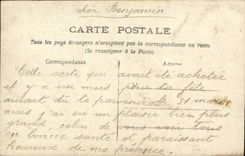 cher Benjamin
CARTE POSTALE
Tous les pays étrangers n'acceptent pas la correspondance au recto
(Se renseigner à la Poste)
Correspondance Adresse
Cette carte qui avait été achetée
il y a un mois pour ta fête
autant de la le 31 mars
mais j'ai eu un plaisir bien plus
grand celui de vous voir tous
en bonne santé et paraissant
heureux de ma présence.